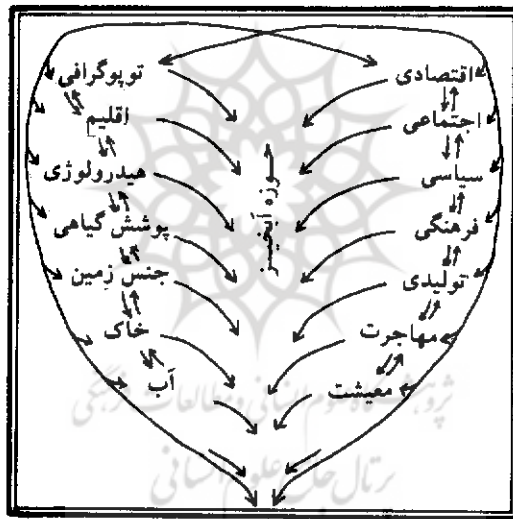 اقتصادی
اجتماعی
سیاسی
فرهنگی
تولیدی
مهاجرت
معیشت
حوزه آبخیز
توپوگرافی
اقلیم
هیدرولوژی
پوشش گیاهی
جنس زمین
خاک
آب
پژوهشگاه علوم انسانی و مطالعات فرهنگی
پرتال جامع علوم انسانی